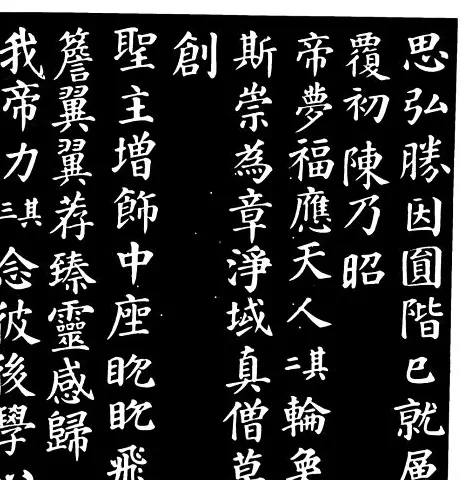 思弘勝因圓階已就層
覆初陳乃昭
帝夢福應天人其二輪奐
斯崇為章淨域真僧草
創
聖主增飾中座眈眈飛
簷翼翼荐臻靈感歸
我帝力其三念彼後學